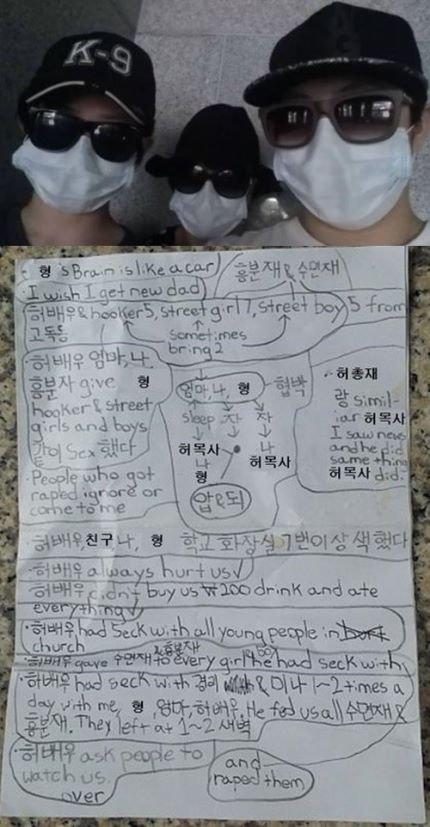 K-9
형's Brain is like a car
I wish I get new dad
흥분재 & 수면재
허배우 & hooker 5, street girl 7, street boy 5 from
sometimes
bring 2
허배우 엄마, 나,
흥분자 give 형
hooker & street
girls and boys
같이 sex 했다
People who got
raped ignore or
come to me
엄마, 나, 형 - 협박
sleep 자 자
허목사 나
나 허목사
형
허총재
랑 simil-
iar 허목사
I saw news
and he did
same thing
허목사 did.
허배우, 친구 나, 형 학교 화장실 7번이상 색했다
허배우 always hurt us ✓
허배우 didn't buy us ₩200 drink and ate
everything ✓
허배우 had seck with all young people in
church
& 흥분재
허배우 gave 수면재 to every girl he had seck with
허배우 had seck with 경리 & 미나 1~2 times a
day with me, 형, 엄마, 허배우. He fed us all 수면재 &
흥분재. They left at 1~2 새벽
허배우 ask people to
watch us.
over
and
raped them